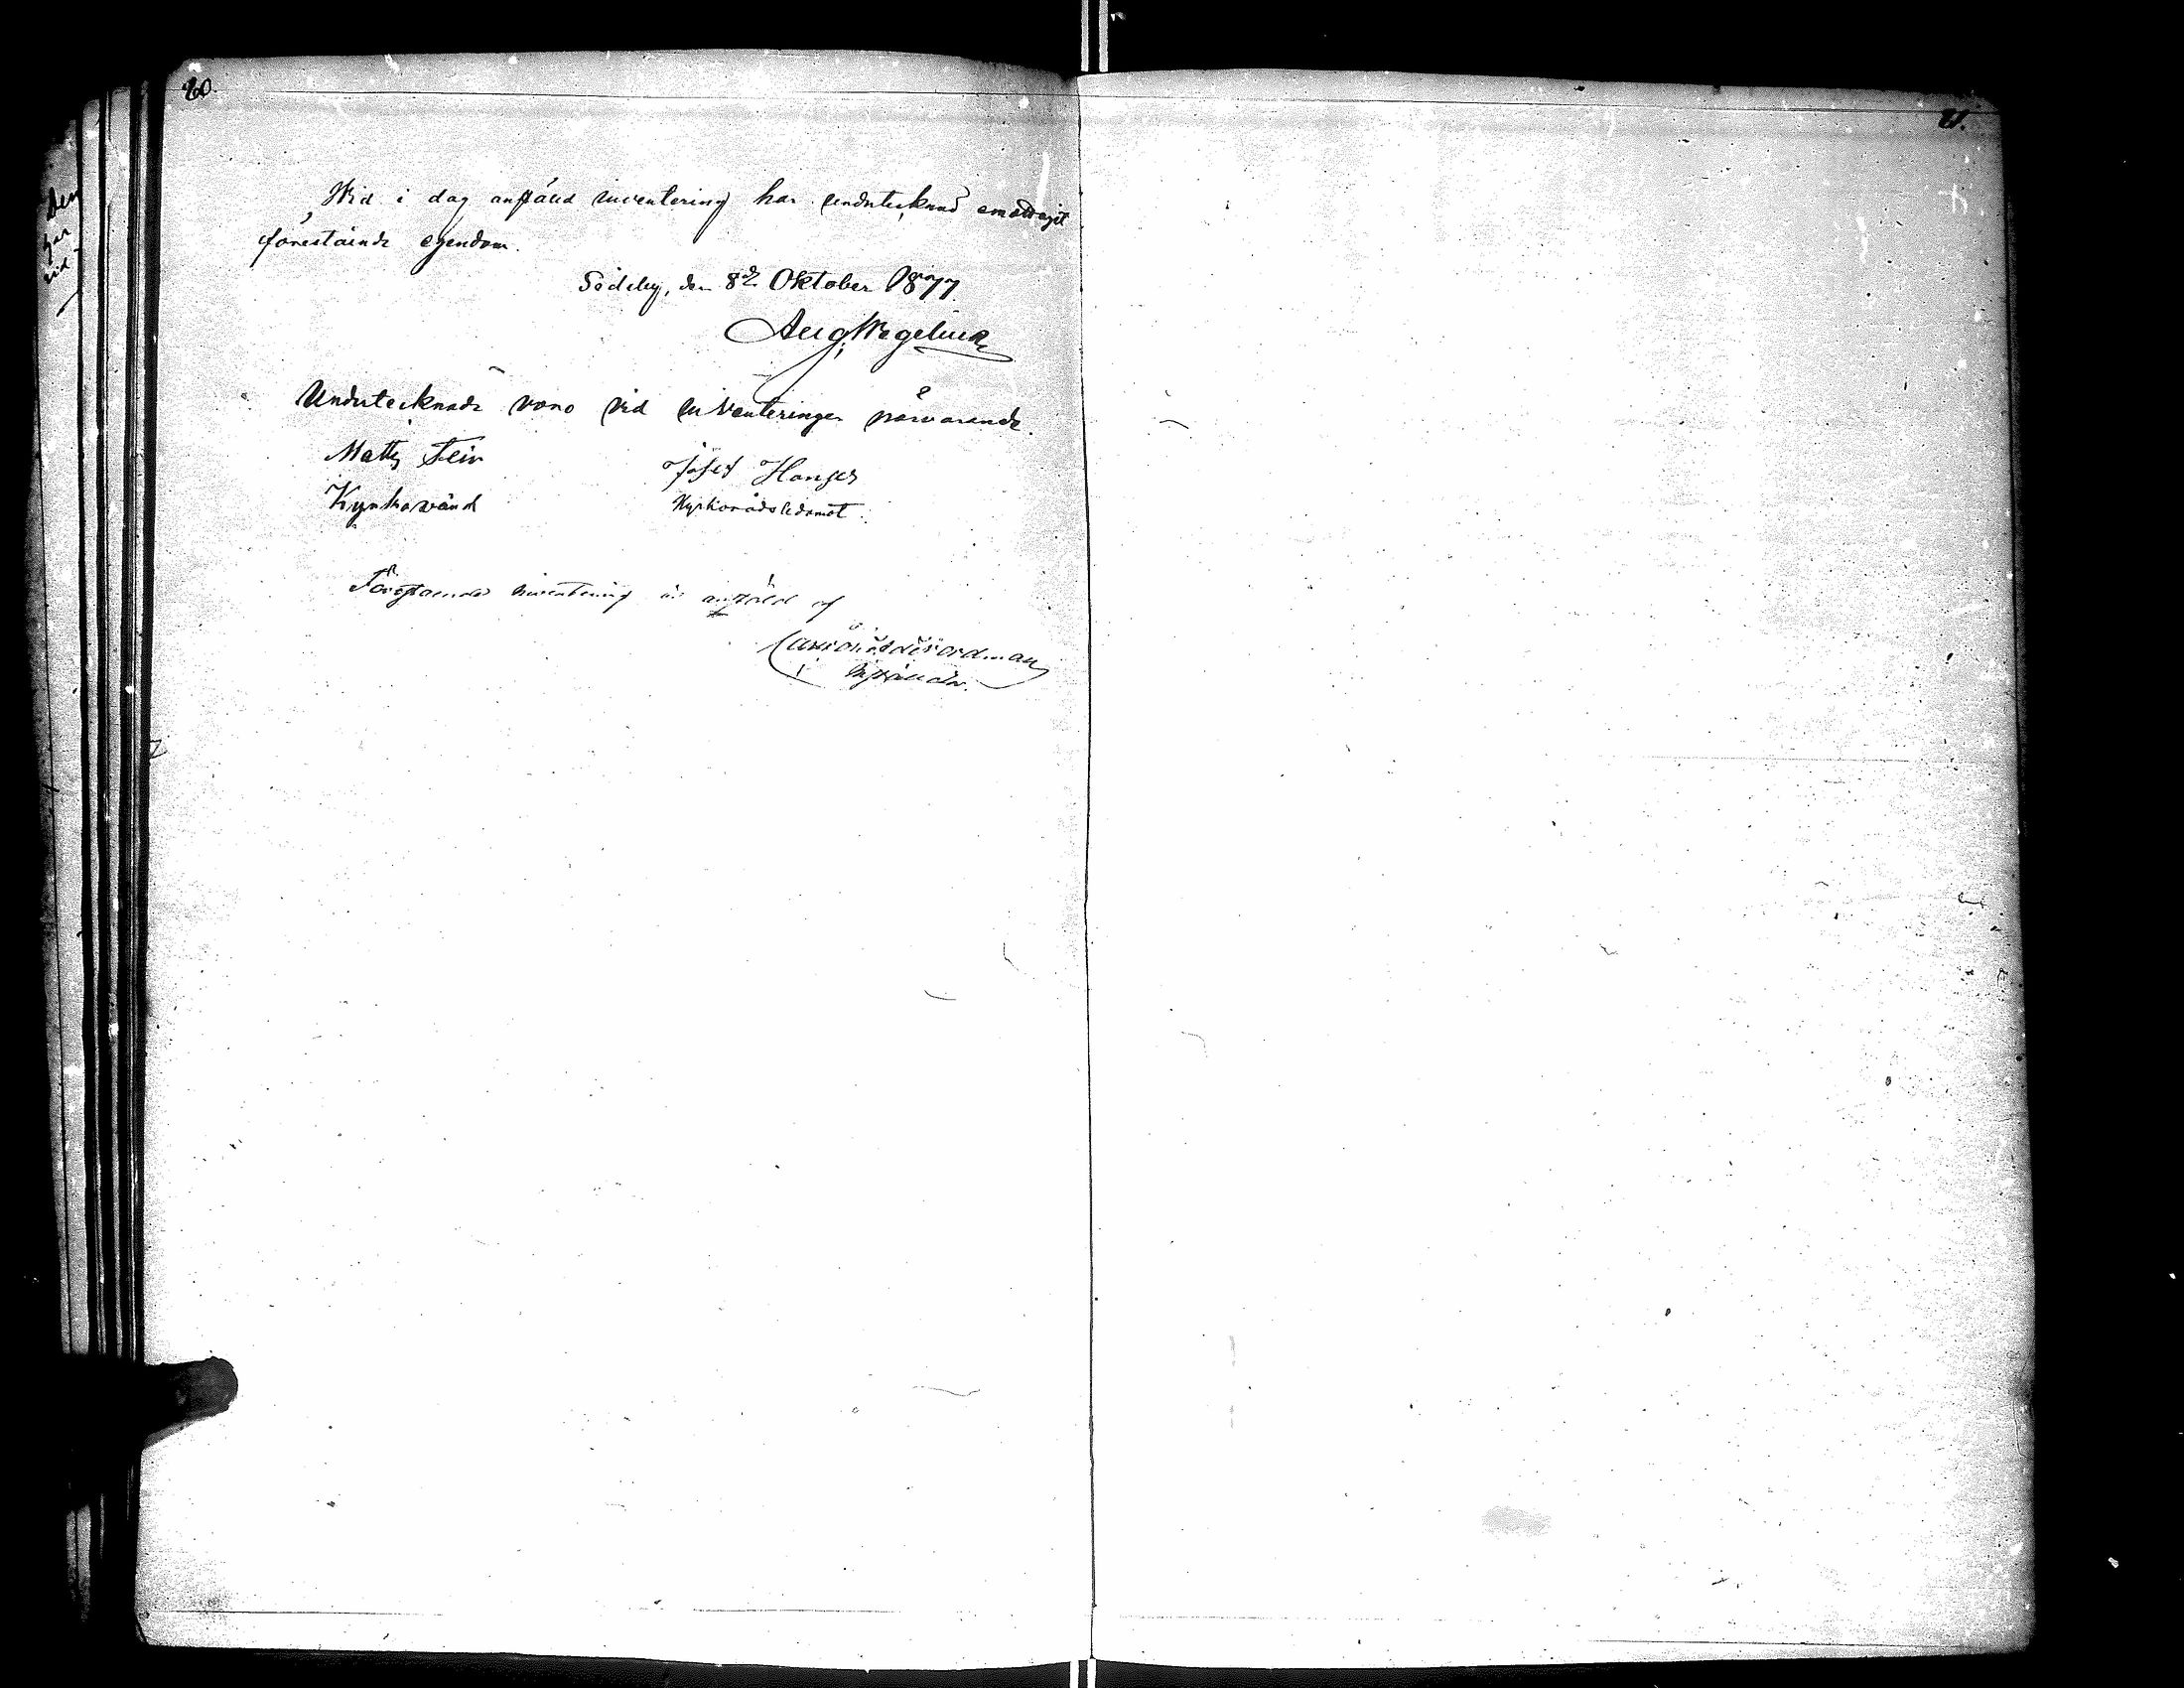 20.
Wid i dag anstäld inventering har undertecknad emottagit
förestående egendom.
Södeby, den 8de Oktober 1877.
Aug. Wegelius
Undertecknade voro vid inventeringen närvarande.
Matts Fein
Josef Hanses
Kyrkovärd
Kyrkorådsledamot.
Förestående inventering är anstäld af
21.
Den
har
vid